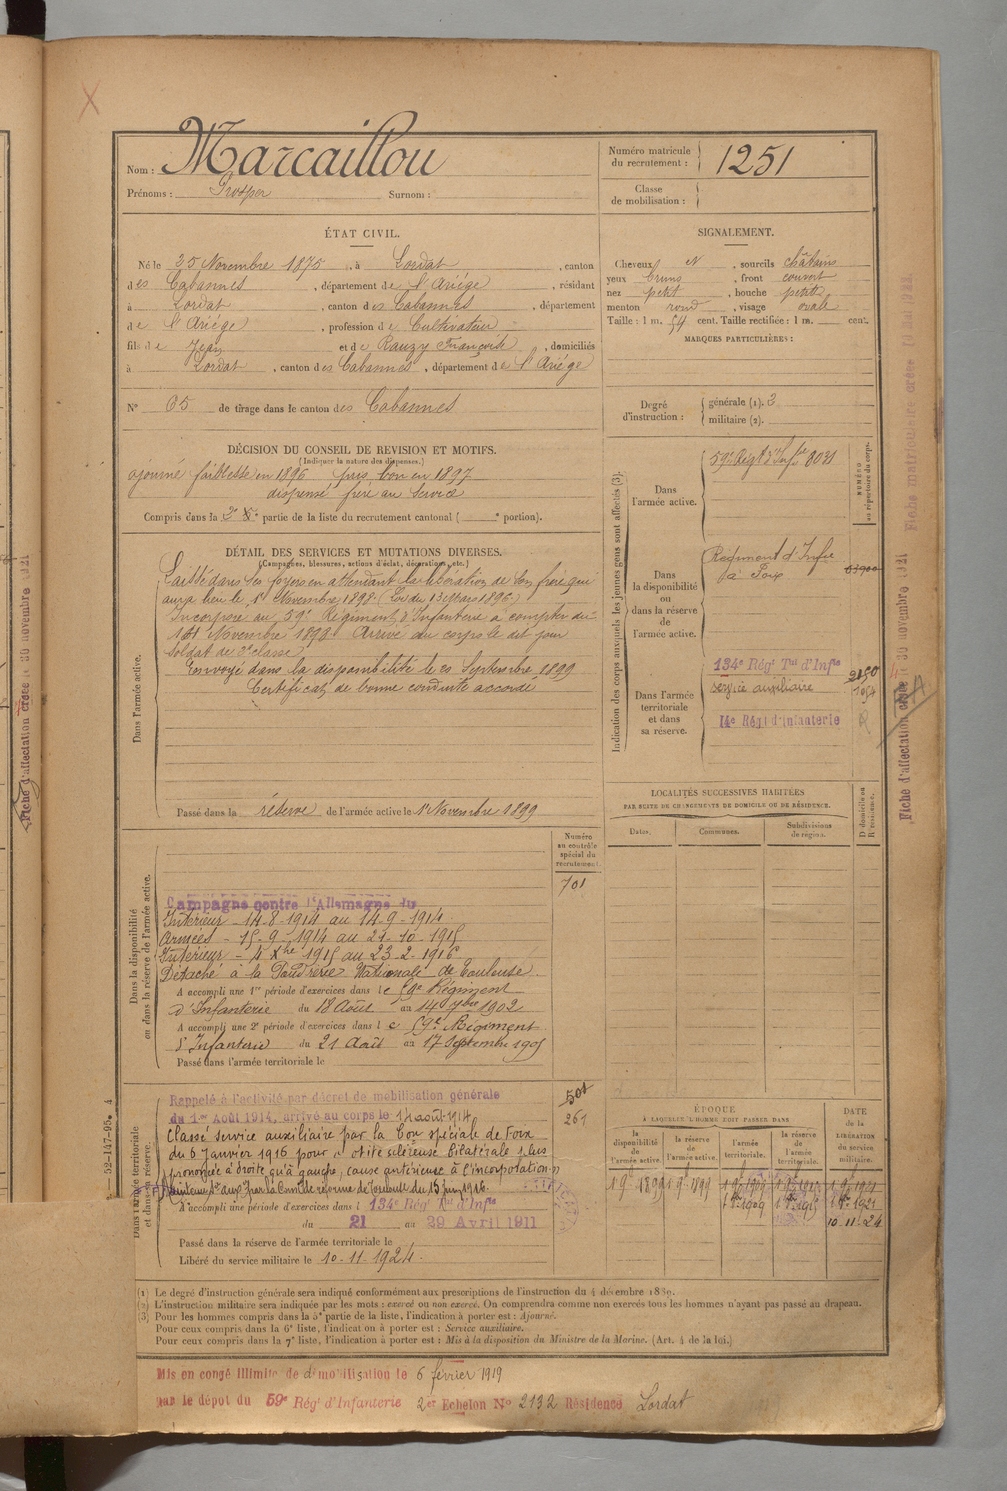 Nom : Marcaillou
Prénoms : Prosper Surnom :
Numéro matricule du recrutement : 1251
Classe de mobilisation :
ÉTAT CIVIL.
Né le 25 Novembre 1875, à Lordat, canton
des Cabannes, département de l'Ariège, résidant
à Lordat, canton des Cabannes, département
de l'Ariège, profession de Cultivateur
fils de Jean et de Rauzy Françoise, domiciliés
à Lordat, canton des Cabannes, département de l'Ariège
N° 65 de tirage dans le canton des Cabannes
SIGNALEMENT.
Cheveux et, sourcils châtains
yeux bruns, front couvert
nez petit, bouche petite
menton rond, visage ovale
Taille : 1 m. 54 cent. Taille rectifiée : 1 m. cent.
MARQUES PARTICULIÈRES :
Degré d'instruction : générale (1). 3
militaire (2).
DÉCISION DU CONSEIL DE REVISION ET MOTIFS.
(Indiquer la nature des dispenses.)
ajourné faiblesse en 1896 pris bon en 1897
dispensé frère au service
Compris dans la 2e partie de la liste du recrutement cantonal ( e portion).
DÉTAIL DES SERVICES ET MUTATIONS DIVERSES.
(Campagnes, blessures, actions d'éclat, décorations, etc.)
Dans l'armée active.
Laissé dans ses foyers en attendant la libération de son frère qui
aura lieu le 1er Novembre 1898 (Loi du 13 Mars 1896)
Incorporé au 59e Régiment d'Infanterie à compter du
1er Novembre 1898 Arrivé au corps le dit jour
Soldat de 2e classe
Envoyé dans la disponibilité le 20 Septembre 1899
Certificat de bonne conduite accordé
Passé dans la réserve de l'armée active le 1er Novembre 1899
Indication des corps auxquels les jeunes gens sont affectés (3).
NUMÉRO au répertoire du corps.
Dans l'armée active. 59e Régt d'Infie 8031
Dans la disponibilité ou dans la réserve de l'armée active.
Régiment d'Infie
de Foix
Dans l'armée territoriale et dans sa réserve.
134e Régt Tal d'Infie
service auxiliaire
14e Régt d'Infanterie
LOCALITÉS SUCCESSIVES HABITÉES
PAR SUITE DE CHANGEMENTS DE DOMICILE OU DE RÉSIDENCE.
Dates. Communes. Subdivisions de région. D domicile ou R résidence.
Dans la disponibilité ou dans la réserve de l'armée active.
Numéro au contrôle spécial du recrutement.
701
Campagne contre l'Allemagne du
Intérieur - 14-8-1914 au 14-9-1914
Armées - 15-9-1914 au 21-10-1915
Intérieur - 4 Xbre 1915 au 23-2-1916
Détaché à la Poudrerie Nationale de Toulouse.
A accompli une 1re période d'exercices dans le 59e Régiment
d'Infanterie du 18 Août au 14 7bre 1902
A accompli une 2e période d'exercices dans le 59e Régiment
d'Infanterie du 21 Août au 17 Septembre 1905
Passé dans l'armée territoriale le
Dans l'armée territoriale et dans sa réserve.
501
261
Rappelé à l'activité par décret de mobilisation générale
du 1er Août 1914, arrivé au corps le 14 août 1914
Classé service auxiliaire par la Con spéciale de Foix
du 6 Janvier 1916 pour otite scléreuse bilatérale plus
prononcée à droite qu'à gauche, cause antérieure à l'incorporation
Maintenu Sce aux par la Comon de réforme de Toulouse du 15 juin 1916
A accompli une période d'exercices dans l 134e Régt Tal d'Infie
du 21 au 29 Avril 1911
Passé dans la réserve de l'armée territoriale le
Libéré du service militaire le 10.11.1924.
ÉPOQUE
À LAQUELLE L'HOMME DOIT PASSER DANS
la disponibilité de l'armée active. la réserve de l'armée active. l'armée territoriale. la réserve de l'armée territoriale.
DATE de la LIBÉRATION du service militaire.
10.11.24
(1) Le degré d'instruction générale sera indiqué conformément aux prescriptions de l'instruction du 4 décembre 1889.
(2) L'instruction militaire sera indiquée par les mots : exercé ou non exercé. On comprendra comme non exercés tous les hommes n'ayant pas passé au drapeau.
(3) Pour les hommes compris dans la 5e partie de la liste, l'indication à porter est : Ajourné.
Pour ceux compris dans la 6e liste, l'indication à porter est : Service auxiliaire.
Pour ceux compris dans la 7e liste, l'indication à porter est : Mis à la disposition du Ministre de la Marine. (Art. 4 de la loi.)
Mis en congé illimité de démobilisation le 6 février 1919
par le dépôt du 59e Régt d'Infanterie 2e Echelon N° 2132 Résidence Lordat
Fiche d'affectation créée le 30 novembre 1921
Fiche d'affectation créée le 30 novembre 1921